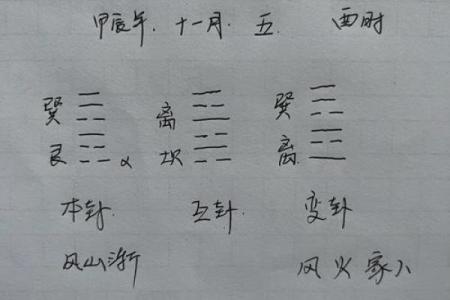 甲辰年. 十一月. 五. 酉时
巽 离 巽
艮 x 坎 离
本卦. 互卦. 变卦
风山渐 风火家人